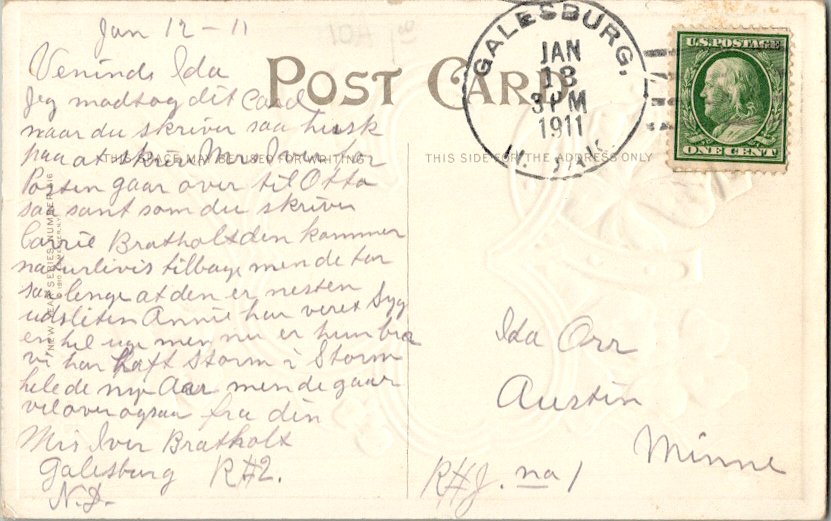 Jan 12-11
Veninde Ida
Jeg modtog dit Card
naar du skriver saa husk
paa at skriv Mrs Iver for
Posten gaar over til Otto
saa sant som du skriver
Carrie Bratholt den kommer
naturlivis tilbage men de tar
saa lenge at den er nesten
udsliten Annie har veret Syg
en hel uge men nu er hun bra
vi har haft Storm i Storm
hele de nye Aar men de gaar
vel over ogsaa fra din
Mrs Iver Bratholt
Galesburg R#2.
N.D.
POST CARD
THIS SPACE MAY BE USED FOR WRITING
THIS SIDE FOR THE ADDRESS ONLY
NEW YEAR SERIES NUMBER
GALESBURG,
JAN
13
3 PM
1911
N. DAK.
U.S. POSTAGE
ONE CENT
Ida Orr
Austin
Minne
no 1